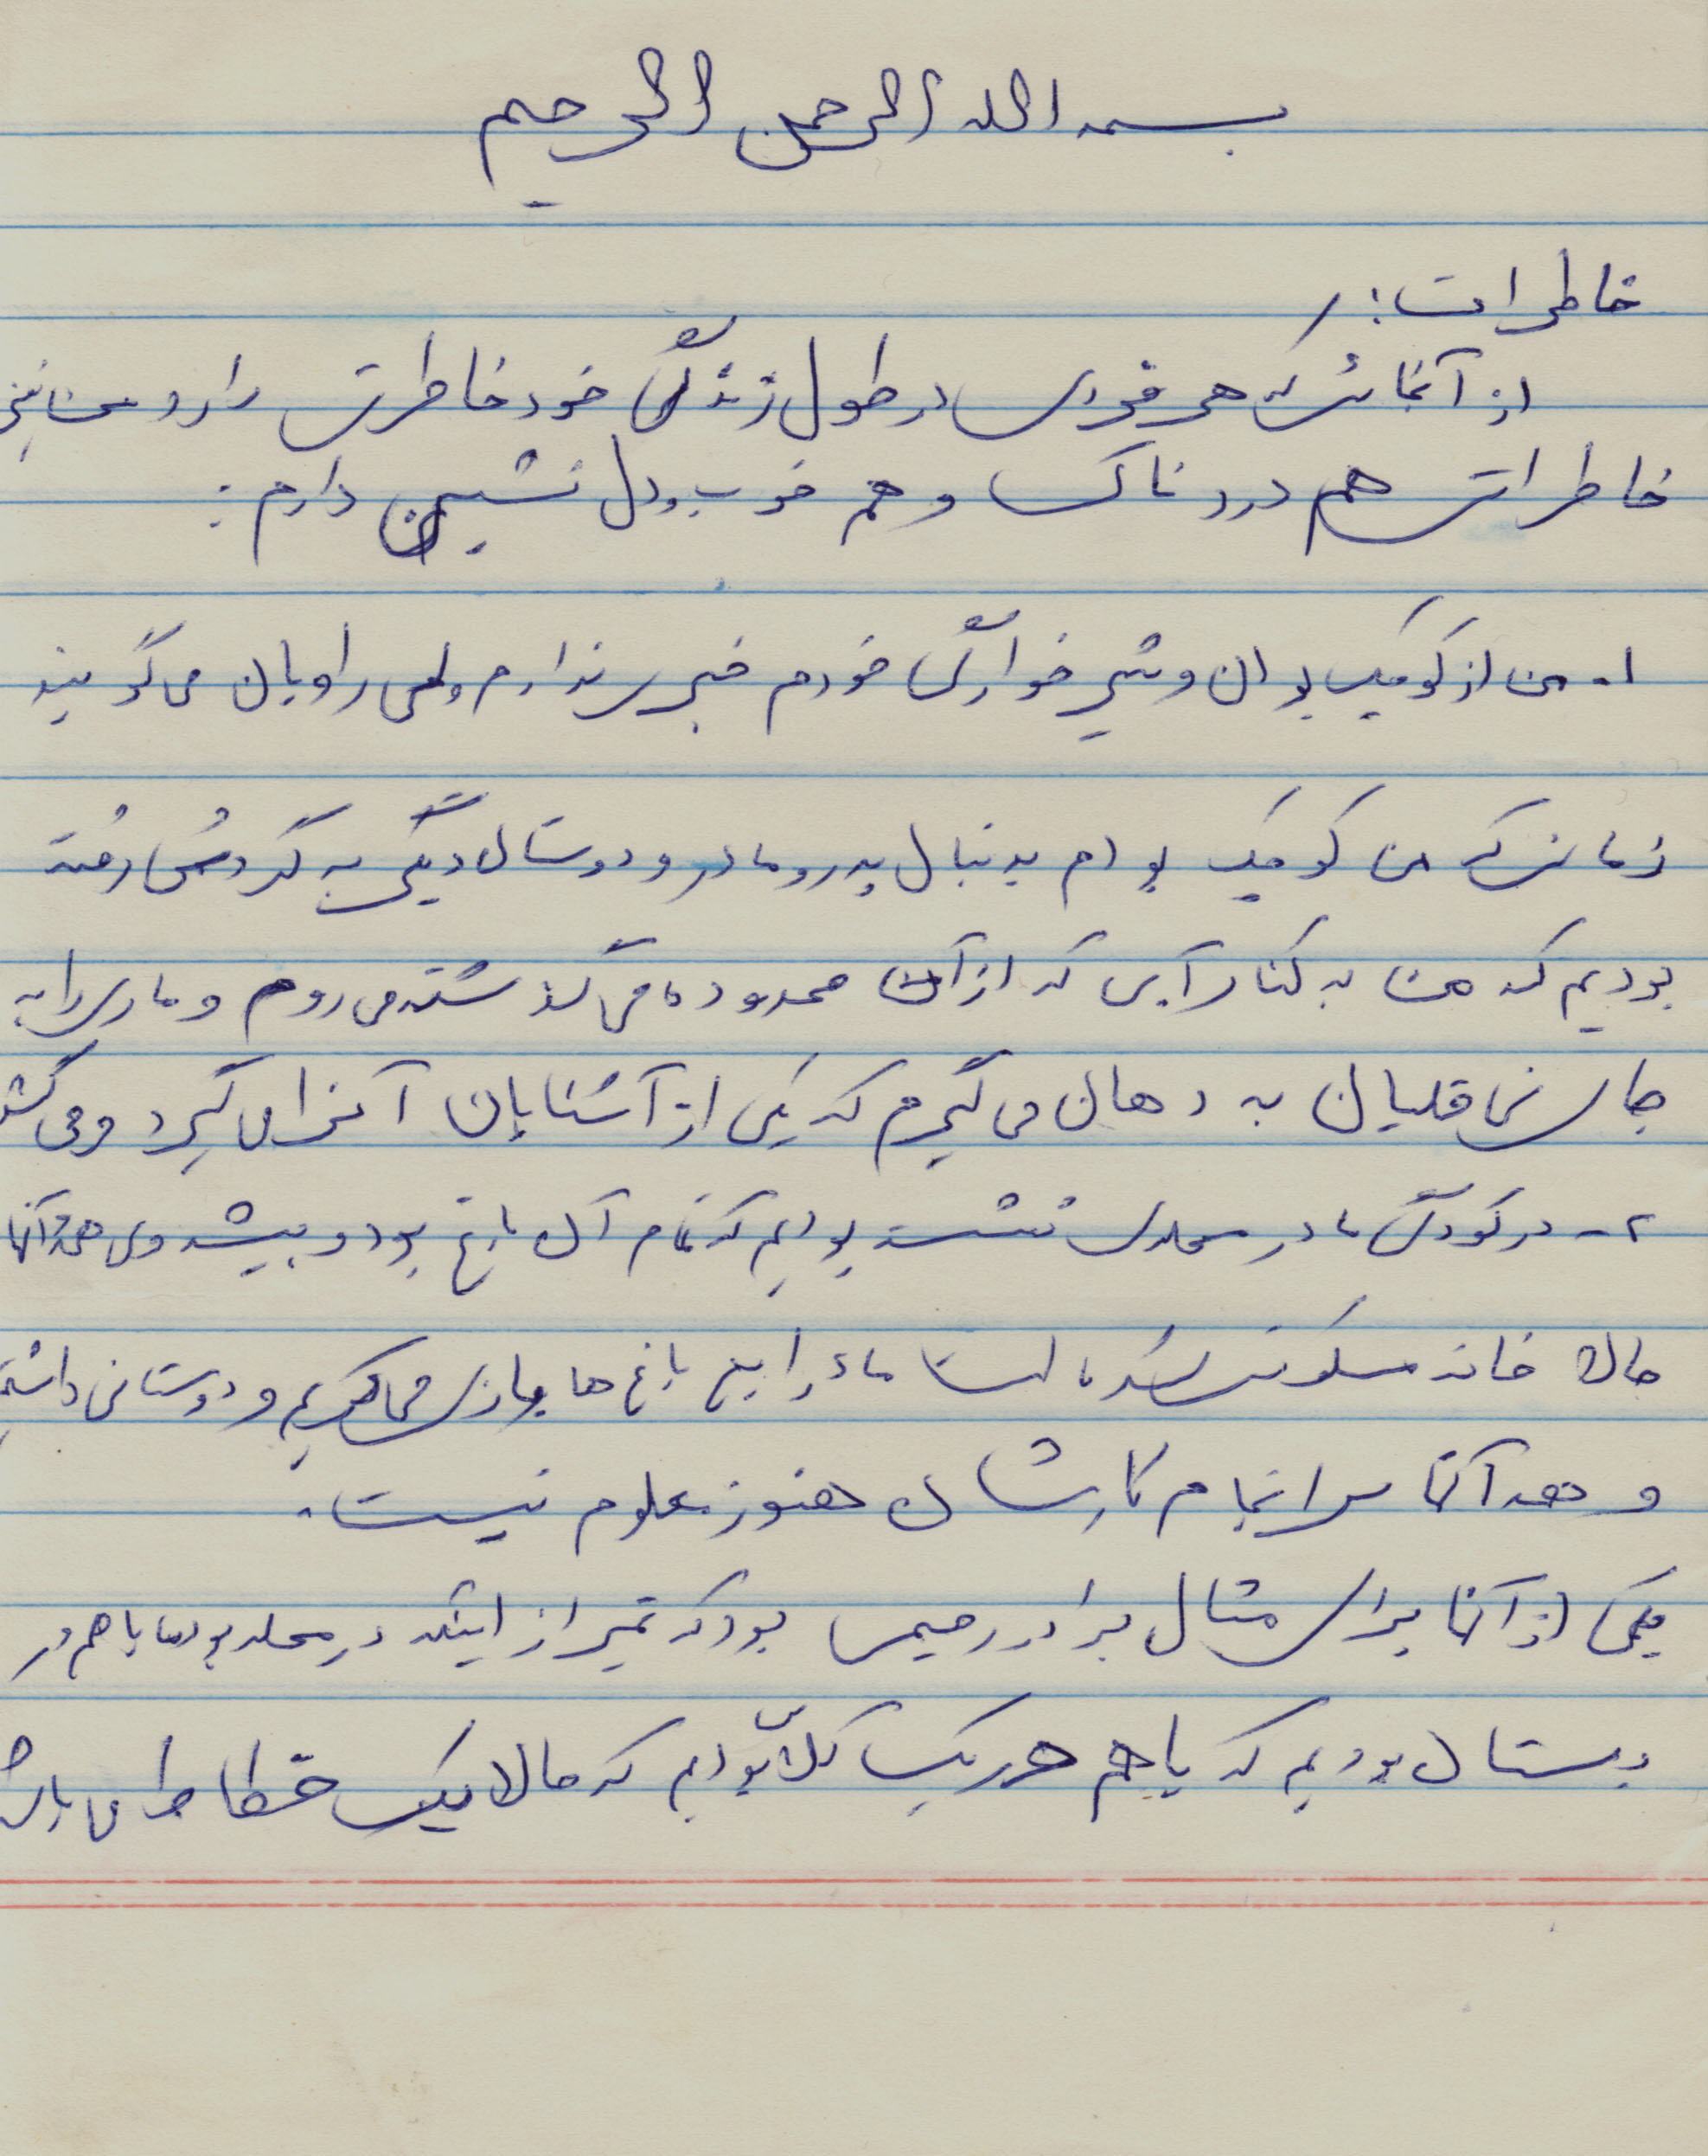 بسمه الله الرحمن الرحیم
خاطرات :
از آنجائیکه هر فردی در طول زندگی خود خاطراتی دارد و من نیز
خاطراتی هم دردناک و هم خوب و دل نشین دارم :
۱- من از کوچک بودن و شیرخوارگی خودم خبری ندارم ولی راویان می گویند
زمانی که من کوچک بودم به دنبال پدر و مادر و دوستان دیگر به گردش رفته
بودیم که من به کنار آبی که از آن محدوده می گذشته می روم و ماری را به
جای نی قلیان به دهان می گیرم که یکی از آشنایان آنرا می گیرد و می کشد
۲- در کودکی ما در محله ای نشسته بودیم که تمام آن باغ بود و بیشه ولی همه آنها
حالا خانه مسکونی شده است ما در این باغ ها بازی می کردیم و دوستانی داشتیم
و همه آنها سرانجام کارشان هنوز معلوم نیست.
یکی از آنها برای مثال برادر رحیمی بود که غیر از اینکه در محله بودیم ما با هم در
دبستان بودیم که با هم در یک کلاس بودیم که حالا یک خطاط می باشد